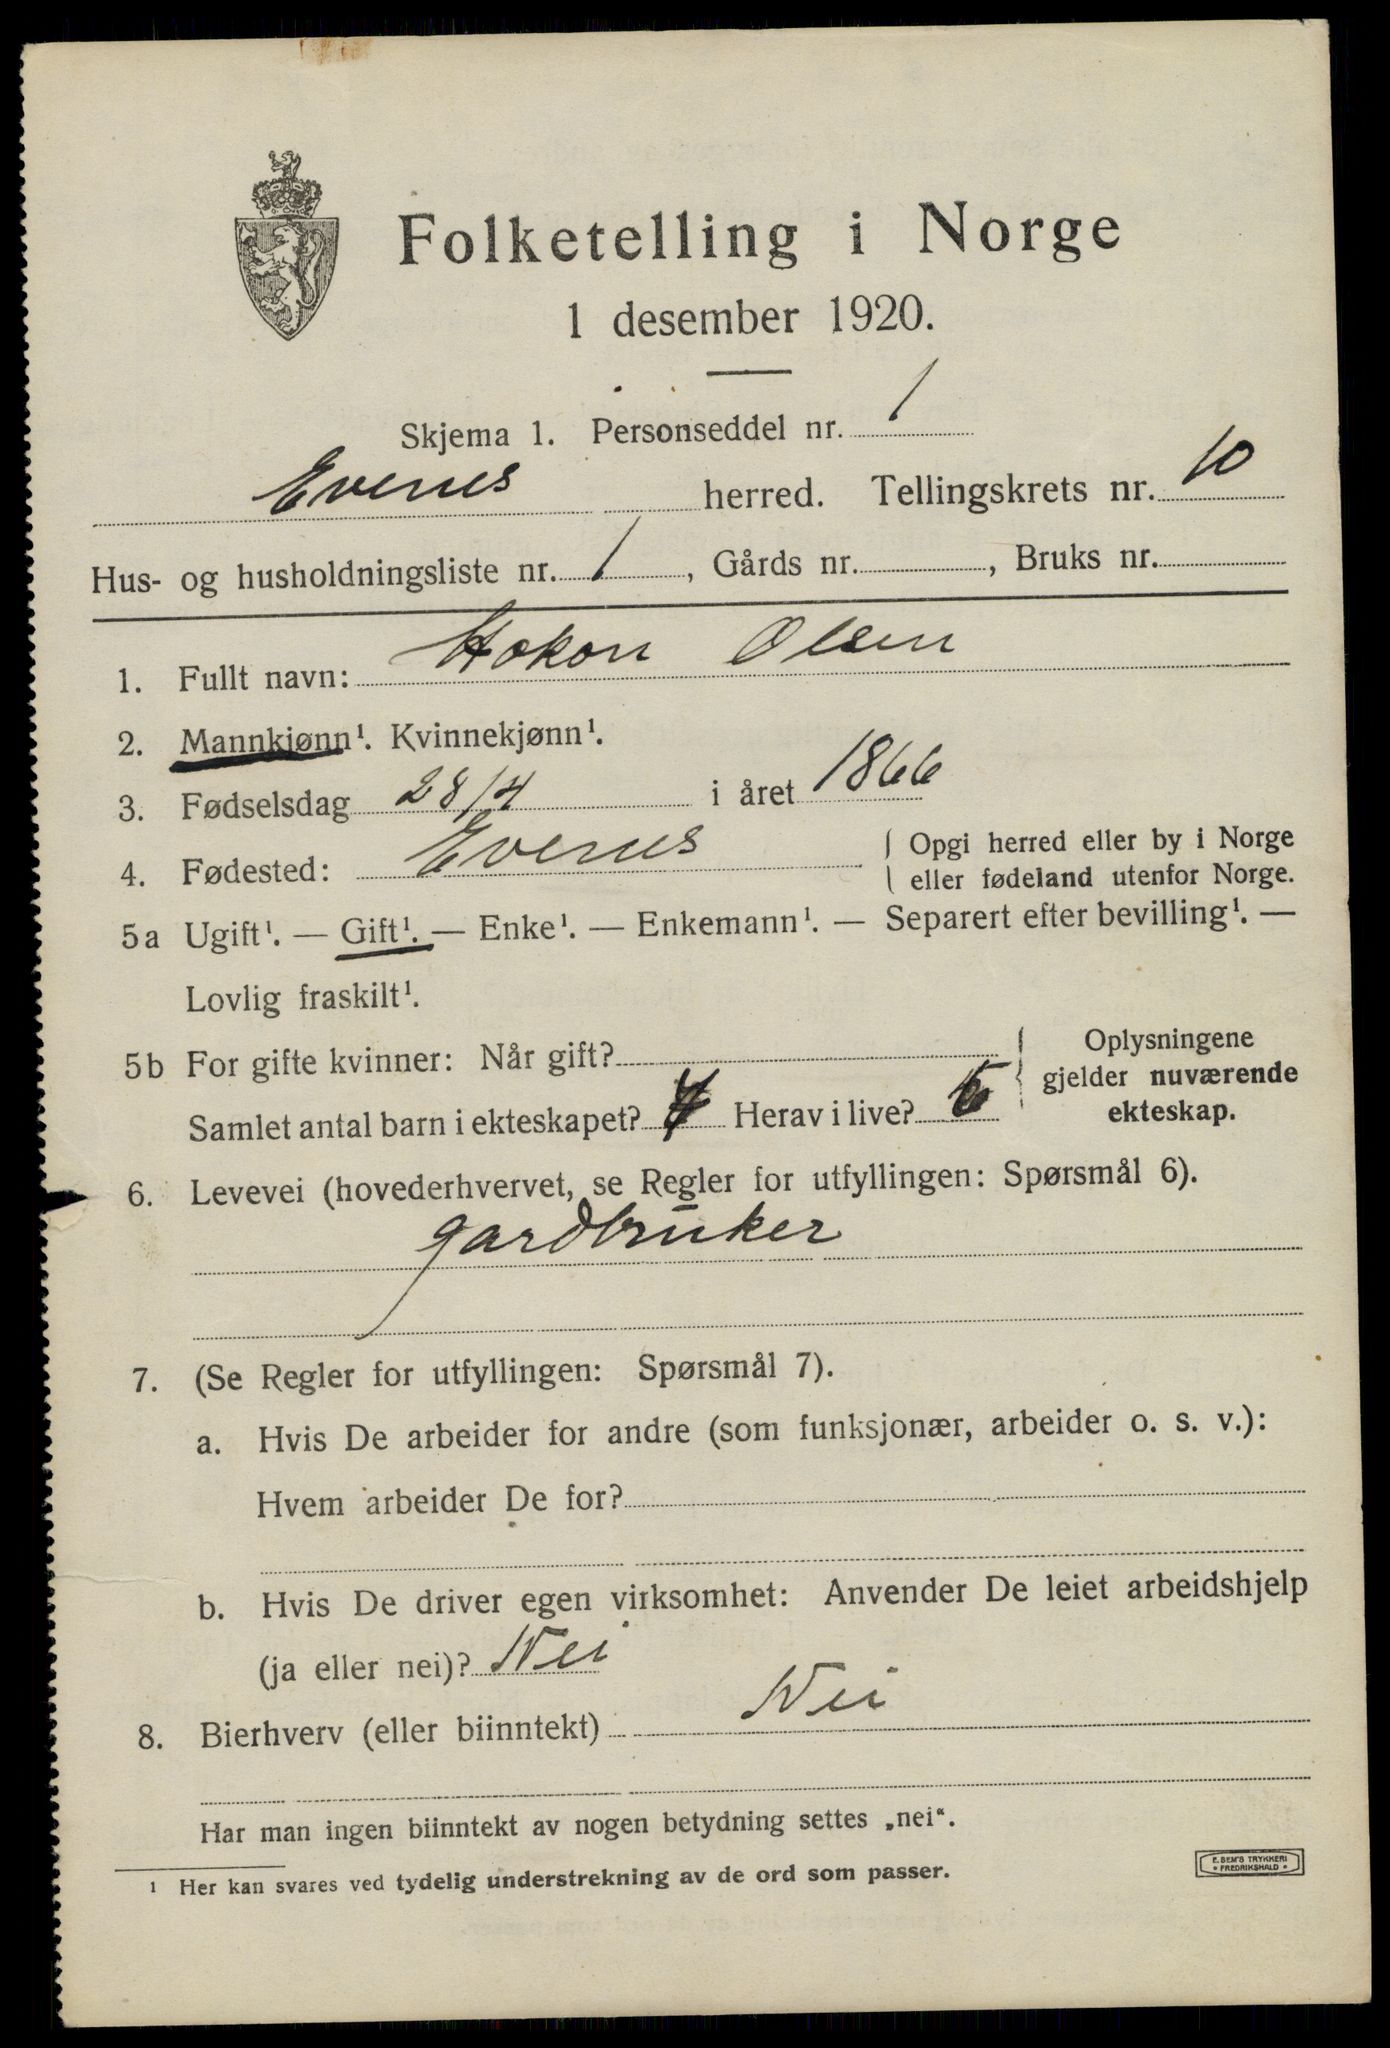 Folketelling i Norge
1 desember 1920.
Skjema 1. Personseddel nr. 1
Evenes herred. Tellingskrets nr. 10
Hus- og husholdningsliste nr. 1, Gårds nr. , Bruks nr.
1. Fullt navn: Hokon Olsen
2. Mannkjønn¹. Kvinnekjønn¹.
3. Fødselsdag 28/4 i året 1866
4. Fødested: Evenes { Opgi herred eller by i Norge
eller fødeland utenfor Norge.
5a Ugift¹. — Gift¹. — Enke¹. — Enkemann¹. — Separert efter bevilling¹. —
Lovlig fraskilt¹.
5b For gifte kvinner: Når gift? { Oplysningene
gjelder nuværende
Samlet antal barn i ekteskapet? Herav i live? ekteskap.
6. Levevei (hovederhvervet, se Regler for utfyllingen: Spørsmål 6).
gardbruker
7. (Se Regler for utfyllingen: Spørsmål 7).
a. Hvis De arbeider for andre (som funksjonær, arbeider o. s. v.):
Hvem arbeider De for?
b. Hvis De driver egen virksomhet: Anvender De leiet arbeidshjelp
(ja eller nei)? Nei
8. Bierhverv (eller biinntekt) Nei
Har man ingen biinntekt av nogen betydning settes „nei“.
¹ Her kan svares ved tydelig understrekning av de ord som passer.
E. SEM'S TRYKKERI
• FREDRIKSHALD •